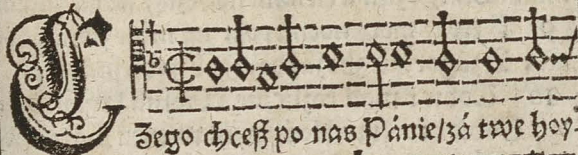 Czego chceß po nas Pánie/zá twe hoy⸗